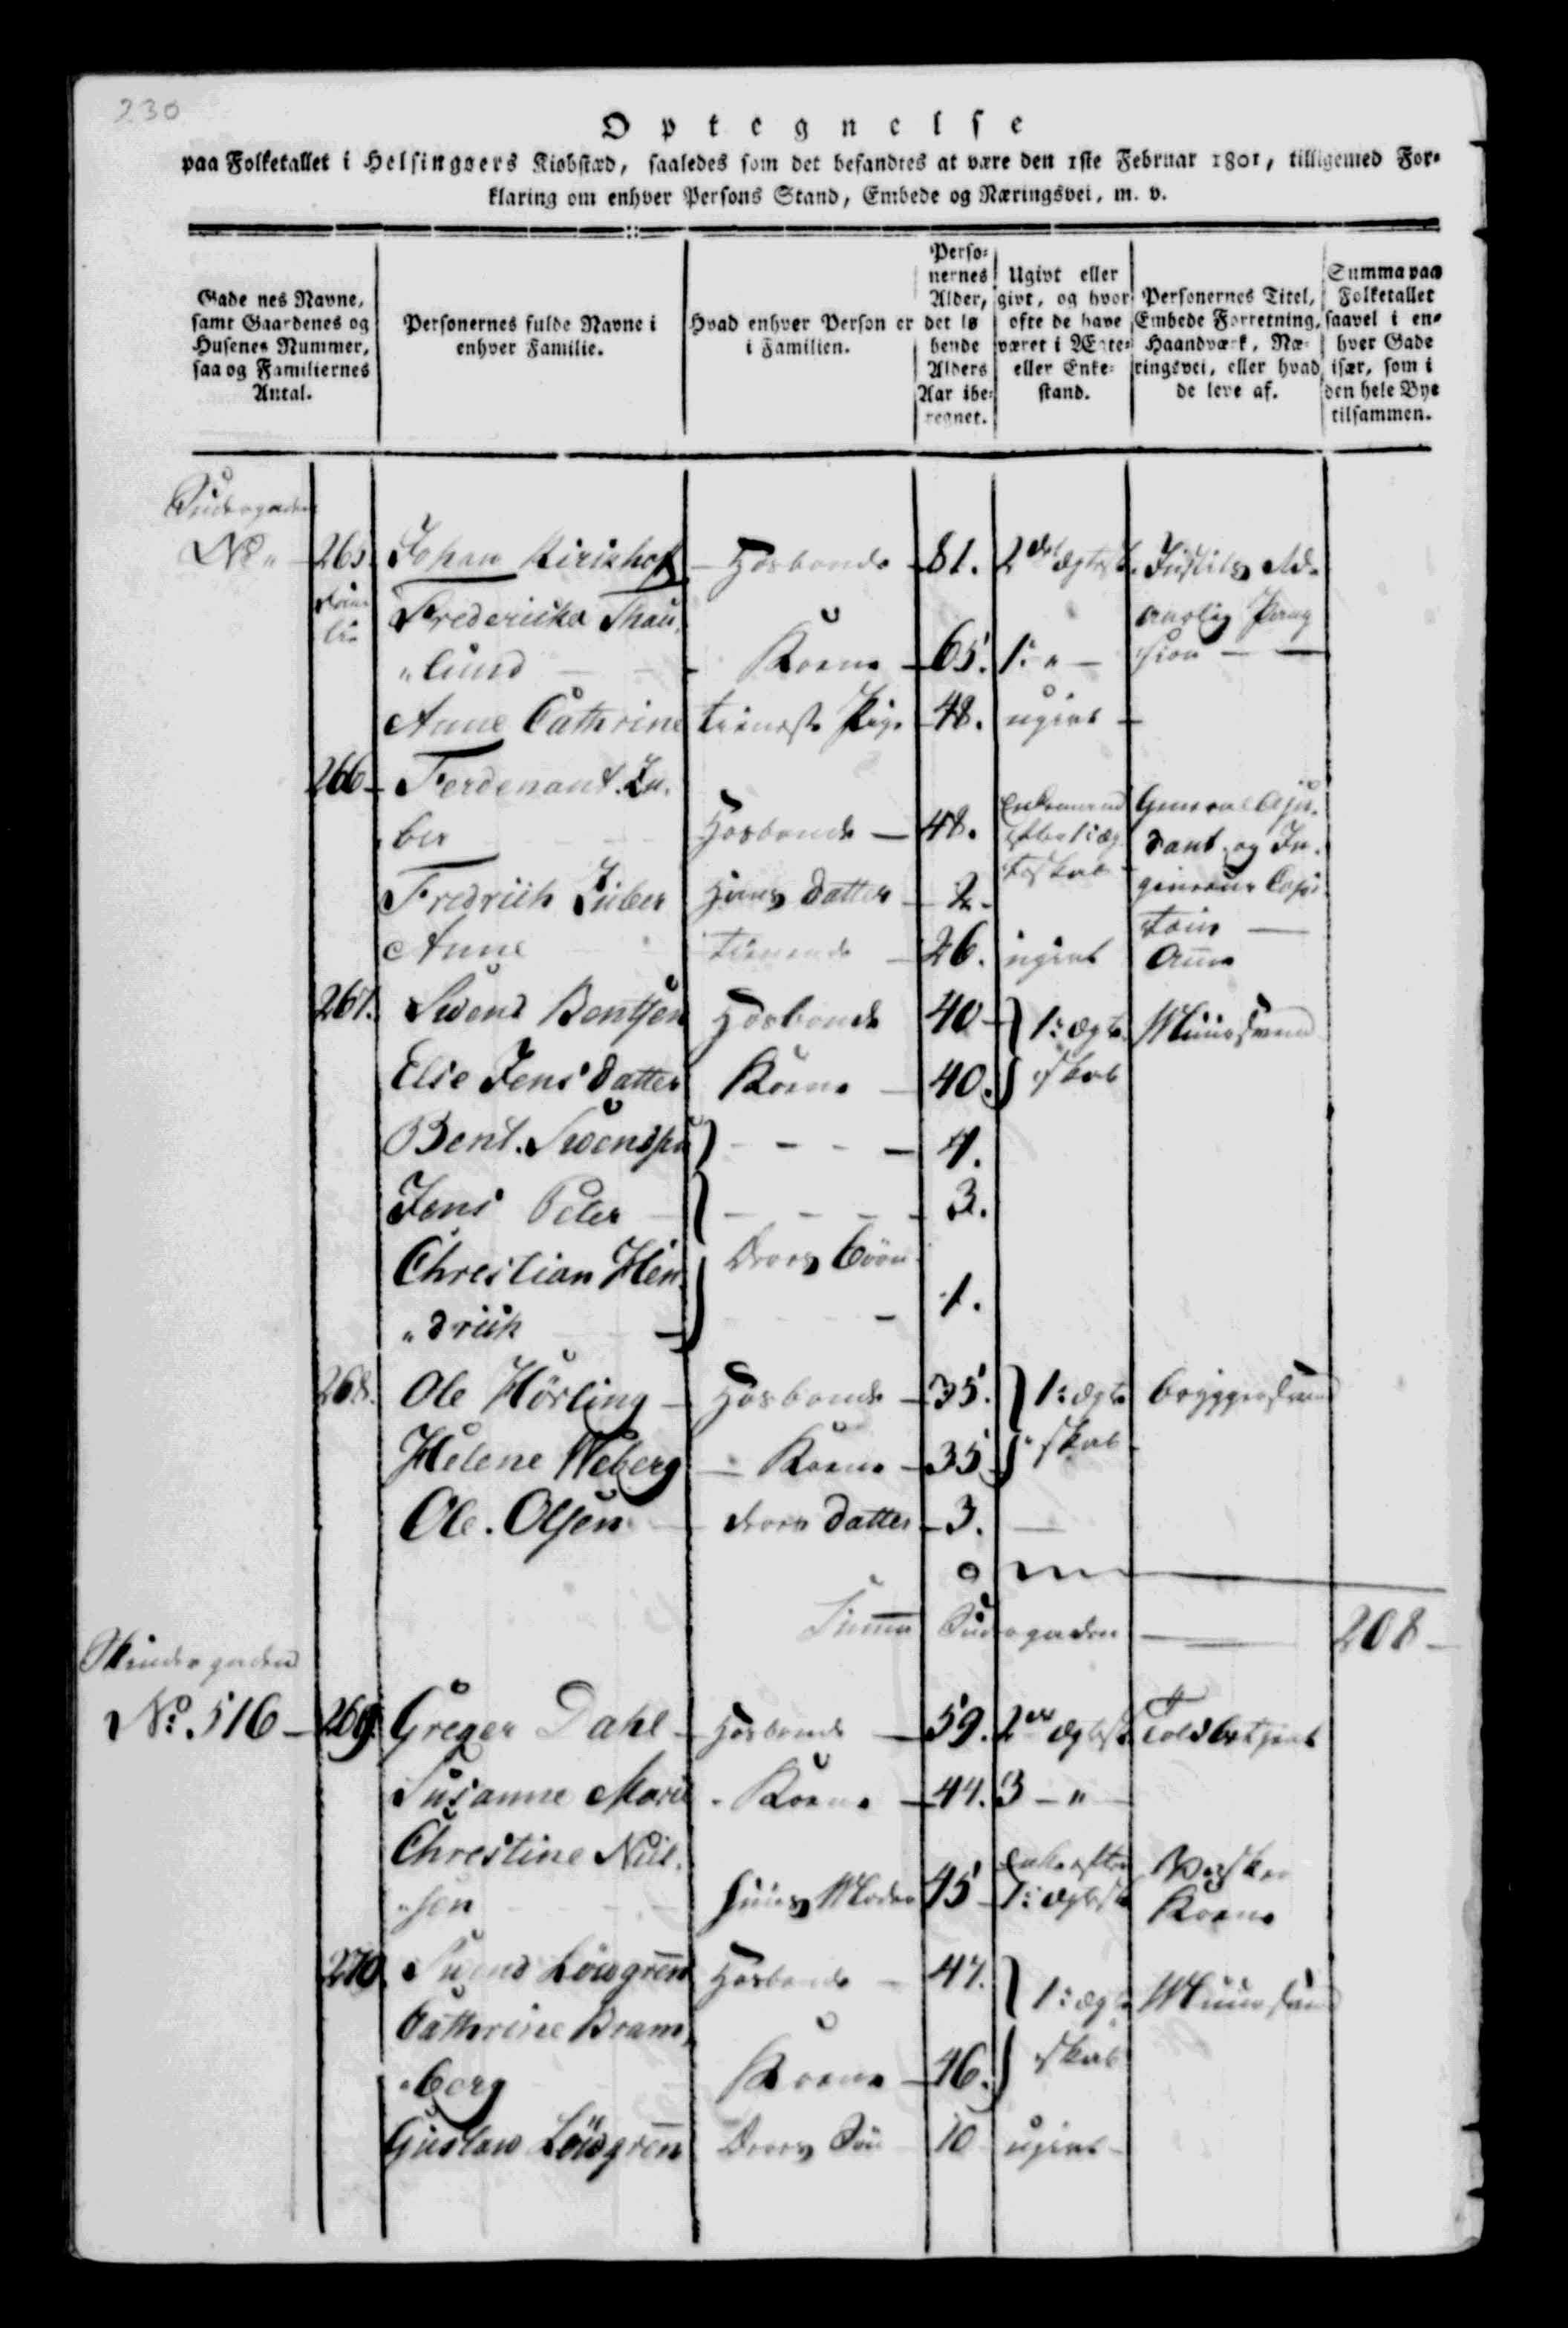 230
Optegnelse
paa Folketallet i Helsingøers Kiøbstæd, saaledes som det befandtes at være den 1ste Februar 1801, tilligemed For-
klaring om enhver Persons Stand, Embede og Næringsvei, m. v.
Gadenes Navne, samt Gaardenes og Husenes Nummer, saa og Familiernes Antal.
Personernes fulde Navne i enhver Familie.
Hvad enhver Person er i Familien.
Personernes Alder, det løbende Alders Aar iberegnet.
Ugivt eller givt, og hvor ofte de have været i Ægte- eller Enkestand.
Personernes Titel, Embede Forretning, Haandværk, Næringsvei, eller hvad de leve af.
Summa paa Folketallet saavel i enhver Gade især, som i den hele Bye tilsammen.
Sudergaden
No " 265. Johan Kirikhoff Hosbonde 81. 2det Ægtesk. Justits Rd.
Fredericka Thau-
"lund Kone 65. 1: " aarlig Pen-
sion
Anne Cathrine tieneste Pige 48. ugivt
266 Ferdenant Zu-
ber Hosbonde 48. Enkemand efter 1: Æg-
teskab General Adju-
dant og In-
genieur Capi-
tain
Fredrich Zuber Hans Datter 2
Anne tienende 26. ugivt Amme
267. Swend Bentsen Hosbonde 40 1: Ægte- Muursvend
Elie Jens Datter Kone 40. skab
Bent. Swendsen 4.
Jens Peter 3.
Deres Børn
Christian Hen-
"drich 1.
268. Ole Hörling Hosbonde 35. 1: Ægte- bryggersvend
Helene Weberg Kone 35 skab
Ole. Olsen deres Datter 3.
Summa Sudergaden 208
Stindergaden
No. 516 269. Greger Dahl Hosbonde 59. 2det Ægtesk. Toldbetient
Susanne Marie Kone 44. 3 - "
Christine Niel-
"sen huus Moder 45 Enke efter 1: Ægtesk. Vasker Kone
270 Swend Löwgren Hosbonde 47. 1: Ægte- Muursvend
Cathrine Bram-
"berg Kone 46. skab
Gustaw Löwgren Deres Søn 10 ugivt